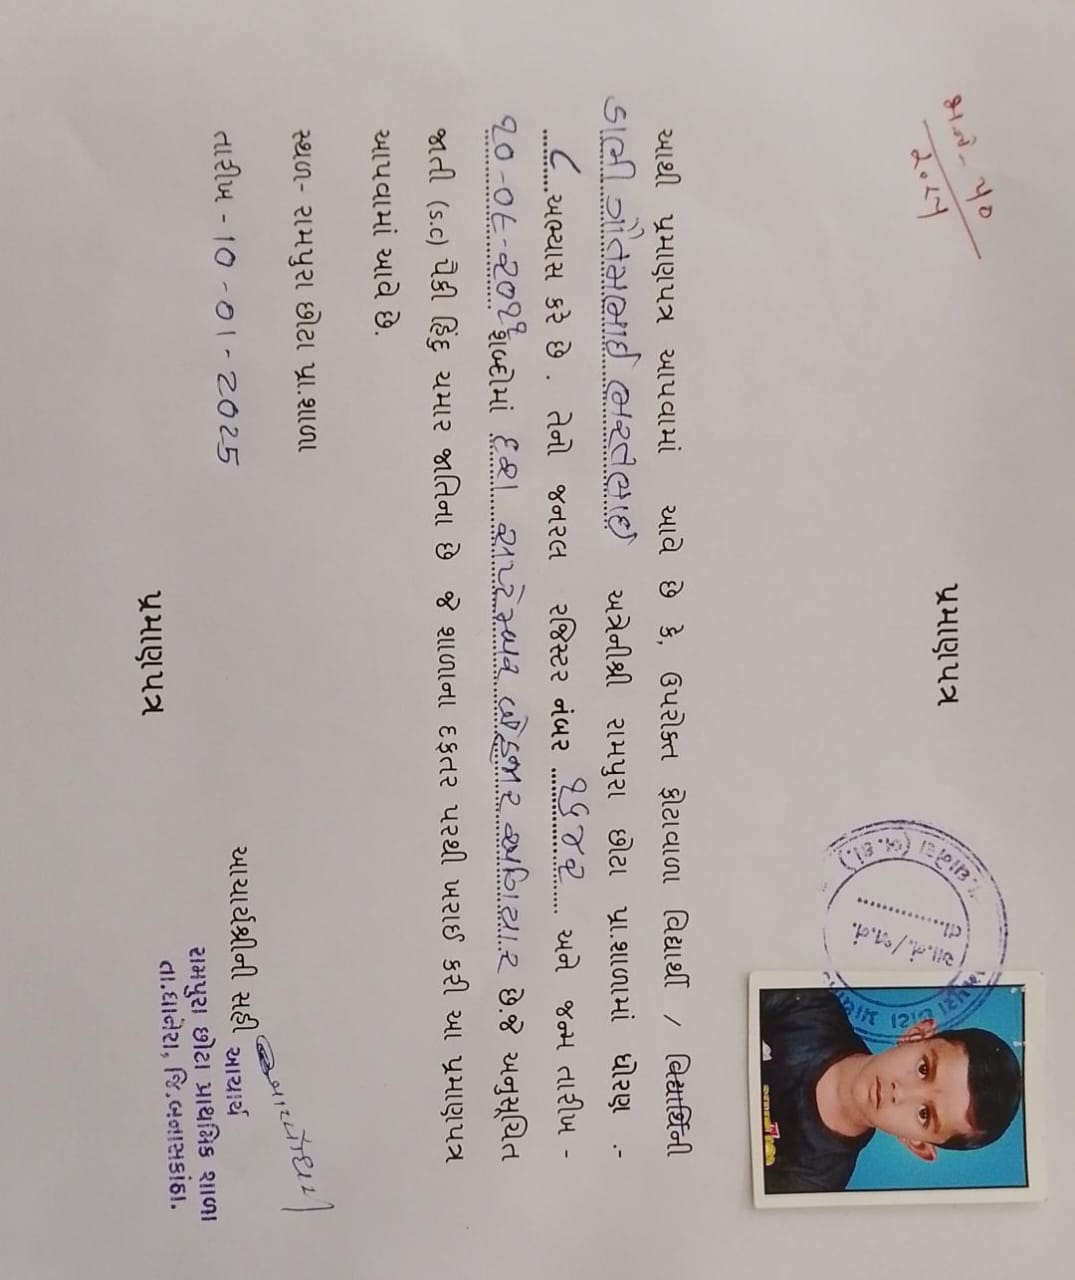 પ્રમાણપત્ર
આથી પ્રમાણપત્ર આપવામાં આવે છે કે, ઉપરોક્ત ફોટાવાળા વિદ્યાર્થી / વિદ્યાર્થિની
ડાભી ગૌતમભાઈ ભરતભાઈ અત્રેનીશ્રી રામપુરા છોટા પ્રા.શાળામાં ધોરણ :-
૮ અભ્યાસ કરે છે . તેનો જનરલ રજિસ્ટર નંબર ૧૫૪૨ અને જન્મ તારીખ -
૧૦-૦૮-૨૦૧૧ શબ્દોમાં દશ સપ્ટેમ્બર બેહજાર અગિયાર છે.જે અનુસૂચિત
જાતી (s.c) પૈકી હિંદુ ચમાર જાતિના છે જે શાળાના દફતર પરથી ખરાઈ કરી આ પ્રમાણપત્ર
આપવામાં આવે છે.
સ્થળ- રામપુરા છોટા પ્રા.શાળા
તારીખ - 10 - 01 - 2025
આચાર્યશ્રીની સહી
આચાર્ય
રામપુરા છોટા પ્રાથમિક શાળા
તા.ધાનેરા, જિ.બનાસકાંઠા.
પ્રમાણપત્ર